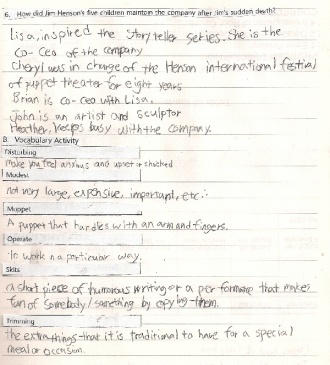 6. How did Jim Henson's five children maintain the company after Jim's sudden death?
Lisa, inspired the story teller series. She is the
co-Ceo of the company
Cheryl was in charge of the Henson international festival
of puppet theater for eight years
Brian is co-ceo with Lisa.
John is an artist and sculptor
Heather, keeps busy with the company.
B. Vocabulary Activity
Disturbing
make you feel anxious and upset or shocked
Modest
not very large, expensive, important, etc.
Muppet
A puppet that handles with an arm and fingers.
Operate
To work in a particular way.
Skits
a short piece of humorous writing or a performance that makes
fun of somebody/something by copying them.
Trimming
the extra things that it is traditional to have for a special
meal or occasion.